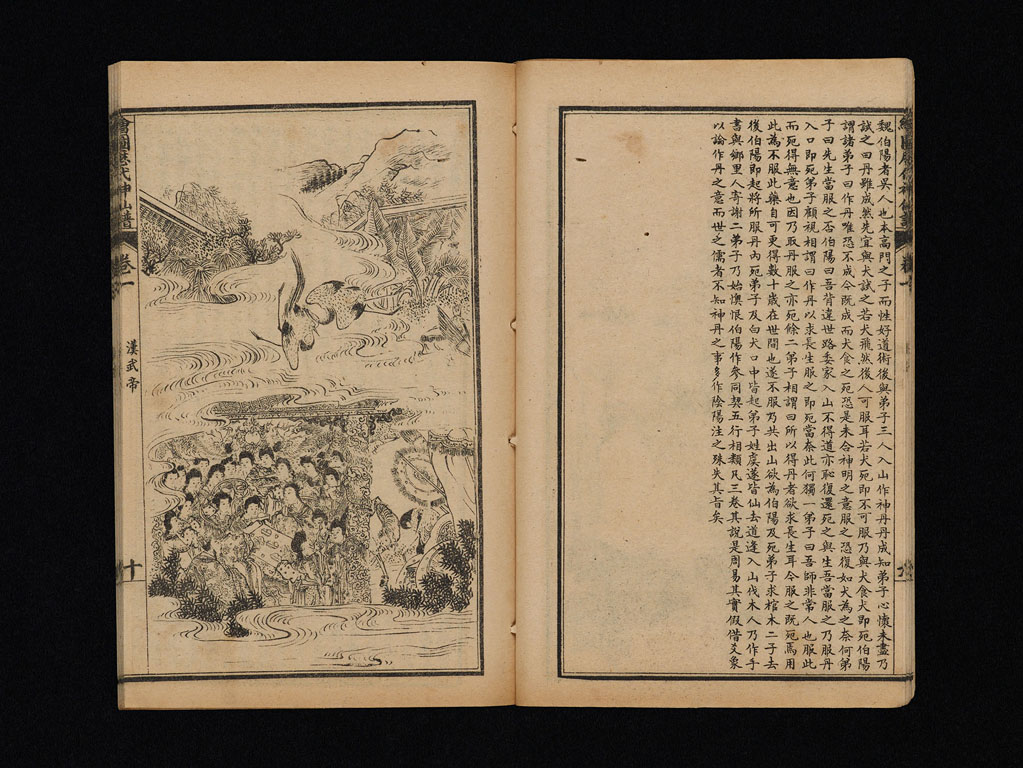 繪圖歷代神仙譜
卷一
九
魏伯陽者吳人也本高門之子而性好道術後與弟子三人入山作神丹丹成知弟子心懷未盡乃
試之曰丹雖成然先宜與犬試之若犬飛然後人可服耳若犬死即不可服乃與犬食犬即死伯陽
謂諸弟子曰作丹唯恐不成今既成而犬食之死恐是未合神明之意服之恐復如犬為之奈何弟
子曰先生當服之否伯陽曰吾背違世路委家入山不得道亦恥復還死之與生吾當服之乃服丹
入口即死弟子顧視相謂曰作丹以求長生服之即死當奈此何獨一弟子曰吾師非常人也服此
而死得無意也因乃取丹服之亦死餘二弟子相謂曰所以得丹者欲求長生耳今服之既死焉用
此為不服此藥自可更得數十歲在世間也遂不服乃共出山欲為伯陽及死弟子求棺木二子去
後伯陽即起將所服丹內死弟子及白犬口中皆起弟子姓虞遂皆仙去道逢入山伐木人乃作手
書與鄉里人寄謝二弟子乃始懊恨伯陽作參同契五行相類凡三卷其說是周易其實假借爻象
以論作丹之意而世之儒者不知神丹之事多作陰陽注之殊失其旨矣
繪圖歷代神仙譜
卷一
漢武帝
十